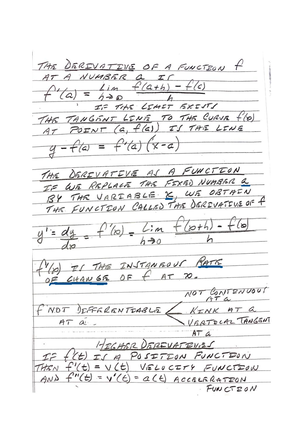 THE DERIVATIVE OF A FUNCTION f
AT A NUMBER a IS
f'(a) = Lim h→0 f(a+h) - f(a) / h
IF THE LIMIT EXISTS
THE TANGENT LINE TO THE CURVE f(x)
AT POINT (a, f(a)) IS THE LINE
y - f(a) = f'(a) (x-a)
THE DERIVATIVE AS A FUNCTION
IF WE REPLACE THE FIXED NUMBER a
BY THE VARIABLE x, WE OBTAIN
THE FUNCTION CALLED THE DERIVATIVE OF f
y' = dy/dx = f'(x) = Lim h→0 f(x+h) - f(x) / h
f'(x) IS THE INSTANEOUS RATE
OF CHANGE OF f AT x.
NOT CONTINUOUS
AT a
f NOT DIFFERENTIABLE
AT a.
KINK AT a
VERTICAL TANGENT
AT a
HIGHER DERIVATIVES
IF f(t) IS A POSITION FUNCTION
THEN f'(t) = v(t) VELOCITY FUNCTION
AND f''(t) = v'(t) = a(t) ACCELERATION
FUNCTION